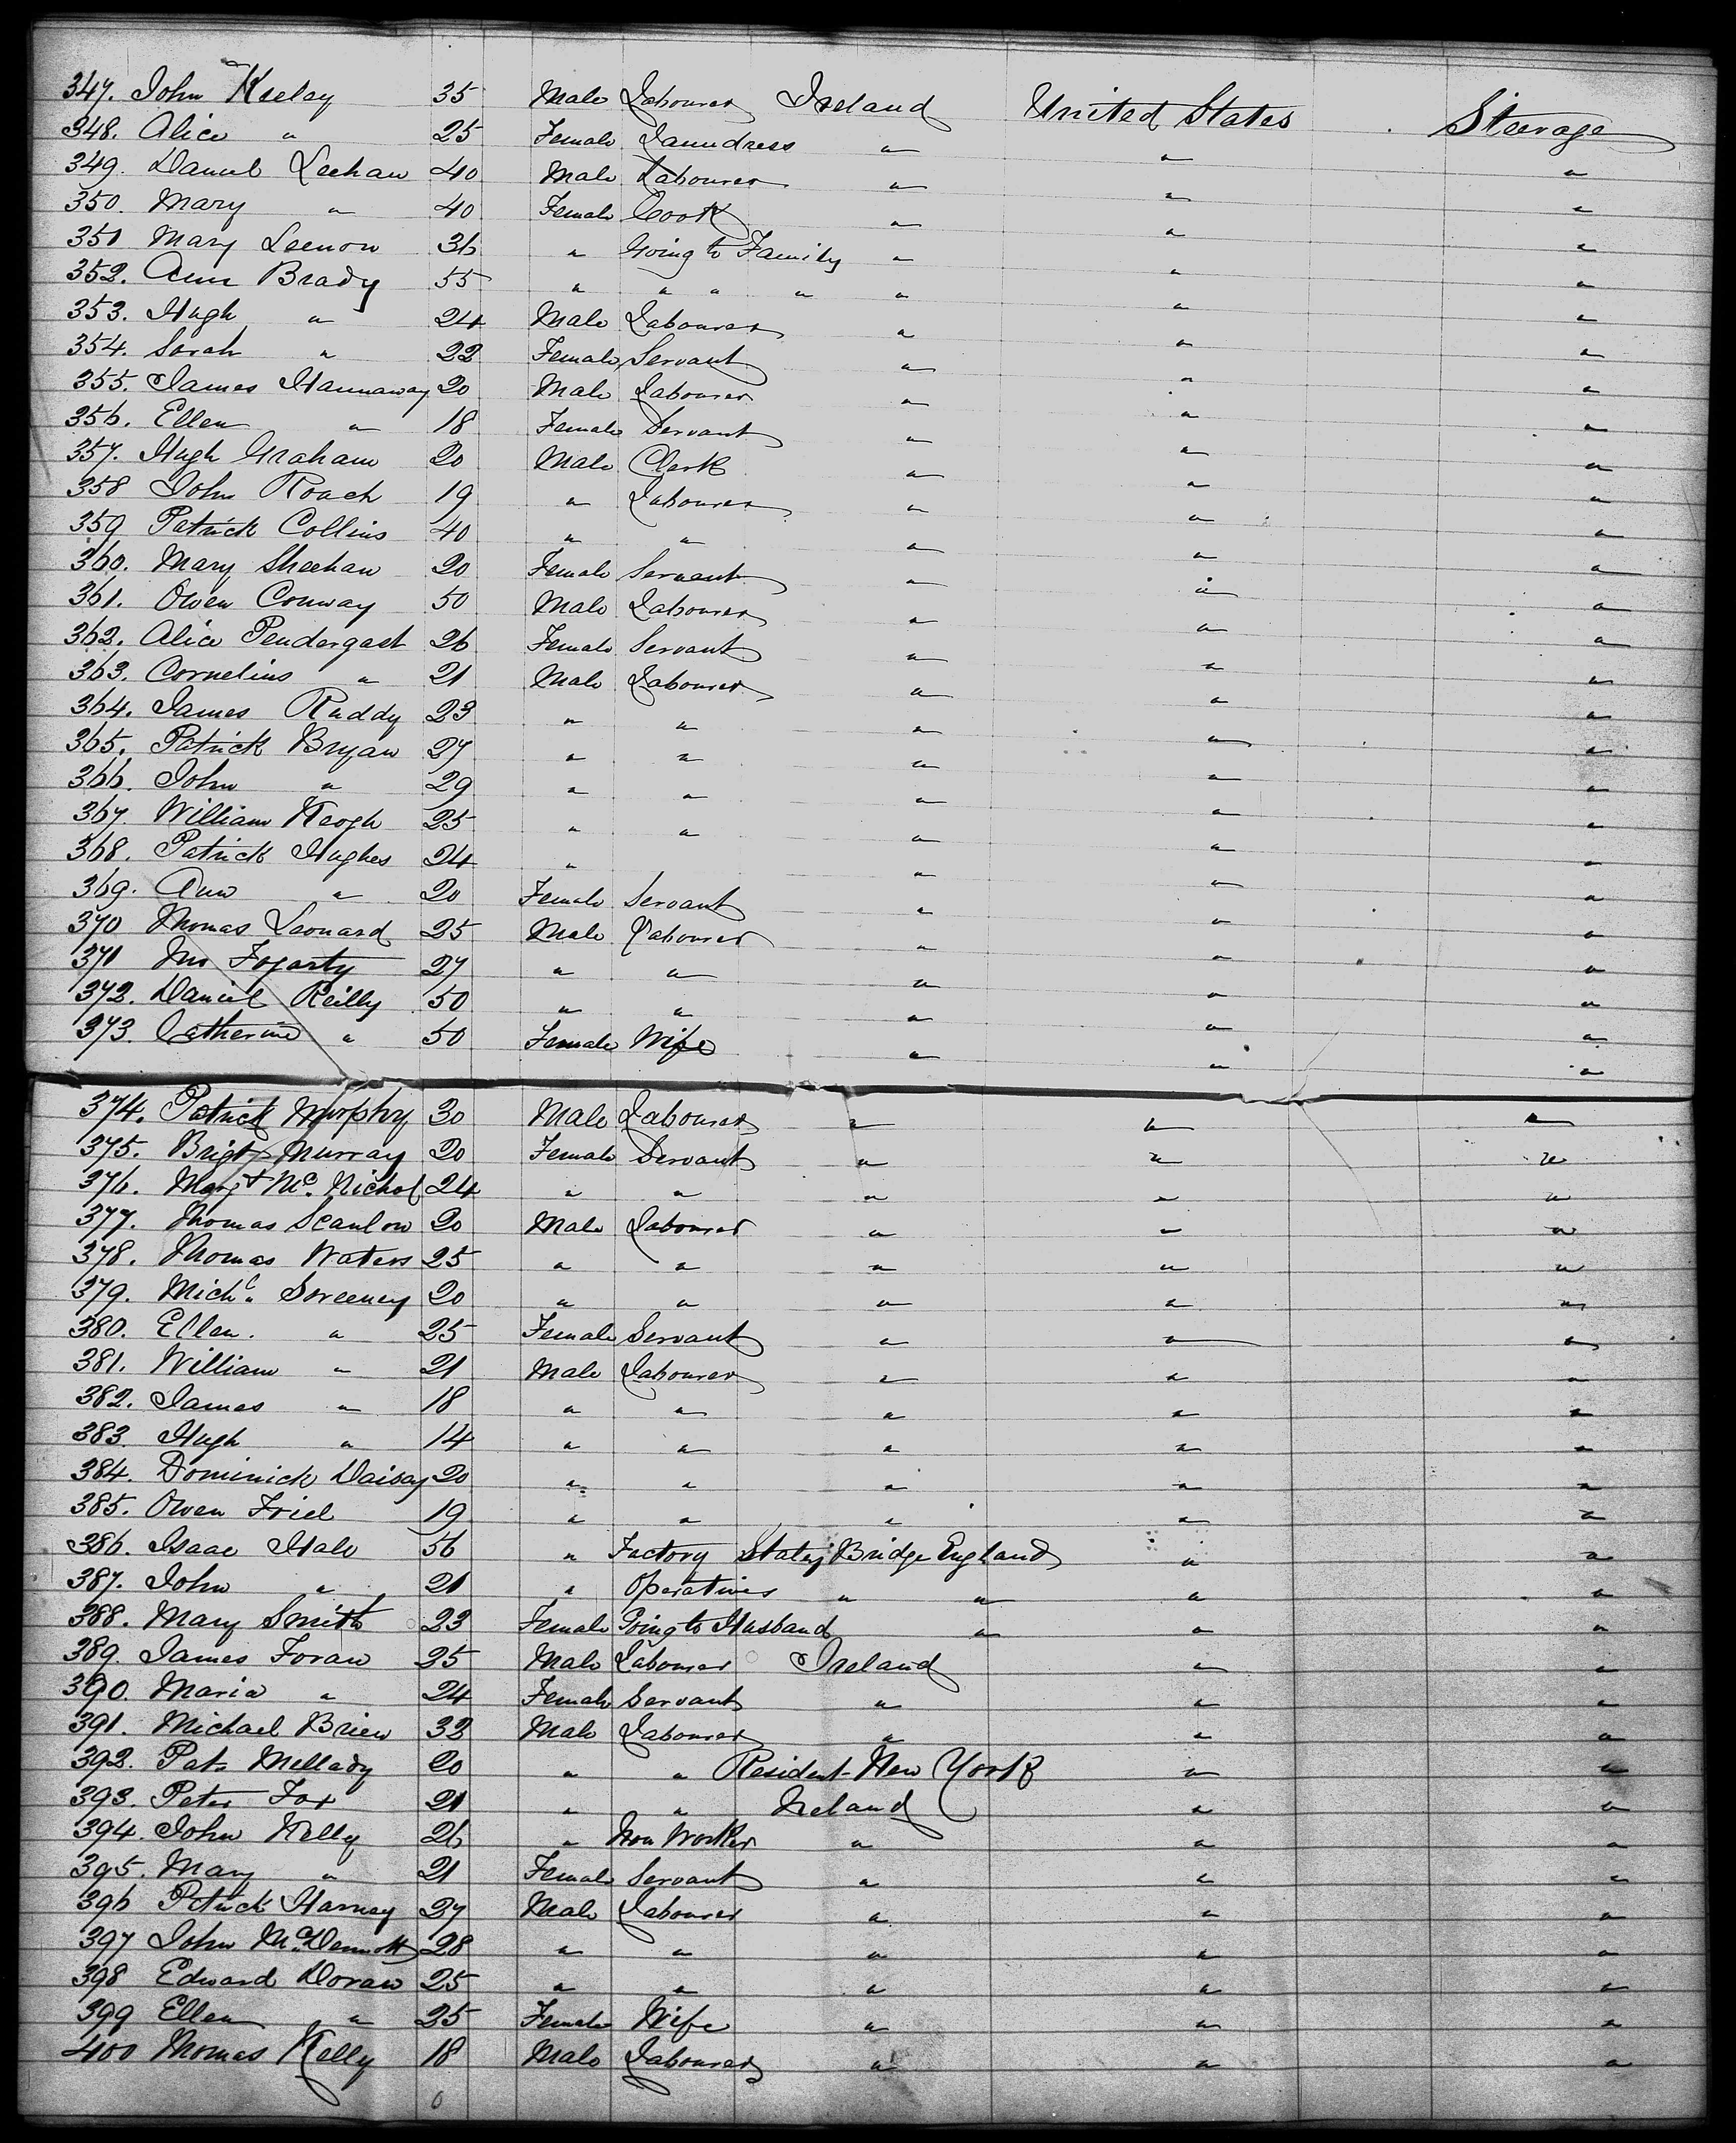 347. John Keeley 35 Male Labourer Ireland United States Steerage
348. Alice " 25 Female Laundress " " "
349. Daniel Leehan 40 Male Labourer " " "
350. Mary " 40 Female Cook " " "
351 Mary Leenon 36 " Going to Family " " "
352. Ann Brady 55 " " " " " " "
353. Hugh " 24 Male Labourer " " "
354. Sarah " 22 Female Servant " " "
355. James Hannaway 20 Male Labourer " " "
356. Ellen " 18 Female Servant " " "
357. Hugh Graham 20 Male Clerk " " "
358 John Roach 19 " Labourer " " "
359 Patrick Collins 40 " " " " "
360. Mary Sheehan 20 Female Servant " " "
361. Owen Conway 50 Male Labourer " " "
362. Alice Pendergast 26 Female Servant " " "
363. Cornelius " 21 Male Labourer " " "
364. James Ruddy 23 " " " " "
365. Patrick Bryan 27 " " " " "
366. John " 29 " " " " "
367. William Keogh 25 " " " " "
368. Patrick Hughes 24 " " " "
369. Ann " 20 Female Servant " " "
370 Thomas Leonard 25 Male Labourer " " "
371 Jno Fogarty 27 " " " " "
372. Daniel Reilly 50 " " " " "
373. Catherine " 50 Female Wife " " "
374. Patrick Murphy 30 Male Labourer " " "
375. Brigt Murray 20 Female Servant " " "
376. Margt McNichol 24 " " " " "
377. Thomas Scanlon 20 Male Labourer " " "
378. Thomas Waters 25 " " " " "
379. Michl. Sweeney 20 " " " " "
380. Ellen. " 25 Female Servant " " "
381. William " 21 Male Labourer " " "
382. James " 18 " " " " "
383. Hugh " 14 " " " " "
384. Dominick Daisay 20 " " " " "
385. Owen Friel 19 " " " " "
386. Isaac Hale 56 " Factory Staley Bridge England " "
387. John " 21 " Operatives " " " "
388. Mary Smith 23 Female Going to Husband " " "
389. James Foran 25 Male Labourer Ireland " "
390. Maria " 24 Female Servant " " "
391. Michael Brien 32 Male Labourer " " "
392. Pat. Mellady 20 " " Resident New York " "
393. Peter Fox 21 " " Ireland " "
394. John Kelly 26 " Iron Worker " " "
395. Mary " 21 Female Servant " " "
396 Patrick Harney 27 Male Labourer " " "
397 John McDermott 28 " " " " "
398 Edward Doran 25 " " " " "
399 Ellen " 25 Female Wife " " "
400 Thomas Kelly 18 Male Labourer " " "